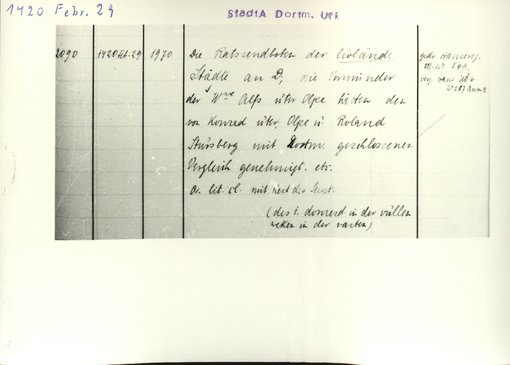 1420 Febr. 29
StadtA Dortm. Urk
2090
1420 Feb. 29
1970
Die Ratssendboten der livländ.
Städte an D, die Vormünder
der Wwe Alfs uter Olpe hätten den
von Konrad uter Olpe u. Roland
Stursberg mit Dortm. geschlossenen
Vergleich genehmigt. etc.
Or. lit. cl. mit rest des Secret.
(des 1. donrerd in der vüllen
weken in der vasten)
gedr. Hanserec.
reg. Hans UB 6